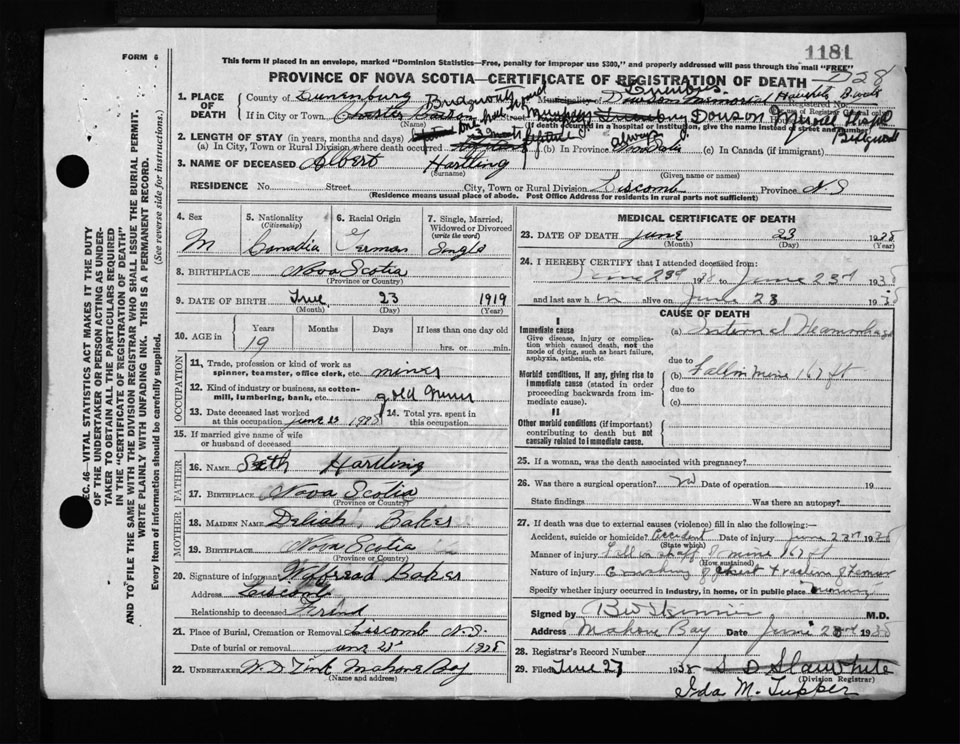 1181
FORM 6
This form if placed in an envelope, marked "Dominion Statistics—Free, penalty for improper use $300," and properly addressed will pass through the mail "FREE"
728
PROVINCE OF NOVA SCOTIA—CERTIFICATE OF REGISTRATION OF DEATH
1. PLACE OF DEATH
County of Lunenburg Bridgewater Municipality of Dawson Memorial Registered No.
If in City or Town Chester Basin Dawson Memorial Hospital Bridgewater
(If death occurred in a hospital or institution, give the name instead of street and number)
2. LENGTH OF STAY (in years, months and days)
(a) In City, Town or Rural Division where death occurred (b) In Province always (c) In Canada (if immigrant)
3. NAME OF DECEASED Albert Hartling
(Surname) (Given name or names)
RESIDENCE No. Street City, Town or Rural Division Liscomb Province N.S
(Residence means usual place of abode. Post Office Address for residents in rural parts not sufficient)
4. Sex M
5. Nationality (Citizenship) Canadia
6. Racial Origin German
7. Single, Married, Widowed or Divorced (write the word) Single
8. BIRTHPLACE Nova Scotia
(Province or Country)
9. DATE OF BIRTH June 23 1919
(Month) (Day) (Year)
10. AGE in Years Months Days If less than one day old
19 hrs. or min.
OCCUPATION
11. Trade, profession or kind of work as spinner, teamster, office clerk, etc. miner
12. Kind of industry or business, as cotton-mill, lumbering, bank, etc. gold
13. Date deceased last worked at this occupation June 23 1938
14. Total yrs. spent in this occupation
15. If married give name of wife or husband of deceased
FATHER
16. Name Seth Hartling
17. Birthplace Nova Scotia
(Province or Country)
MOTHER
18. MAIDEN NAME Deliah Baker
19. BIRTHPLACE Nova Scotia
(Province or Country)
20. Signature of informant Wilfread Baker
Address Liscomb
Relationship to deceased Frind
21. Place of Burial, Cremation or Removal Liscomb N.S.
Date of burial or removal 1938
22. UNDERTAKER Mahone Bay
(Name and address)
MEDICAL CERTIFICATE OF DEATH
23. DATE OF DEATH June 23 1938
(Month) (Day) (Year)
24. I HEREBY CERTIFY that I attended deceased from:
June 23rd 1938 to June 23rd 1938
and last saw him alive on June 23 1938
CAUSE OF DEATH
I
Immediate cause
Give disease, injury or complication which caused death, not the mode of dying, such as heart failure, asphyxia, asthenia, etc.
(a) Internal Heamorhage
due to
Morbid conditions, if any, giving rise to immediate cause (stated in order proceeding backwards from immediate cause).
(b) Fall in mine 167 ft
due to
(c)
II
Other morbid conditions (if important) contributing to death but not causally related to immediate cause.
25. If a woman, was the death associated with pregnancy?
26. Was there a surgical operation? no Date of operation 19
State findings Was there an autopsy?
27. If death was due to external causes (violence) fill in also the following:
Accident, suicide or homicide? accident Date of injury June 23rd 1938
(State which)
Manner of injury Fell in shaft of mine 167 ft
(How sustained)
Nature of injury Crushing of chest + fracture of femur
Specify whether injury occurred in Industry, in home, or in public place Industry
Signed by M.D.
Address Mahone Bay Date June 23rd 1938
28. Registrar's Record Number
29. Filed June 27 1938 S D Slauwhite
(Division Registrar)
Ida M. Tupper
SEC. 46—VITAL STATISTICS ACT MAKES IT THE DUTY
OF THE UNDERTAKER OR PERSON ACTING AS UNDER-
TAKER TO OBTAIN ALL THE PARTICULARS REQUIRED
IN THE "CERTIFICATE OF REGISTRATION OF DEATH"
AND TO FILE THE SAME WITH THE DIVISION REGISTRAR WHO SHALL ISSUE THE BURIAL PERMIT.
WRITE PLAINLY WITH UNFADING INK. THIS IS A PERMANENT RECORD.
Every item of information should be carefully supplied. (See reverse side for instructions.)